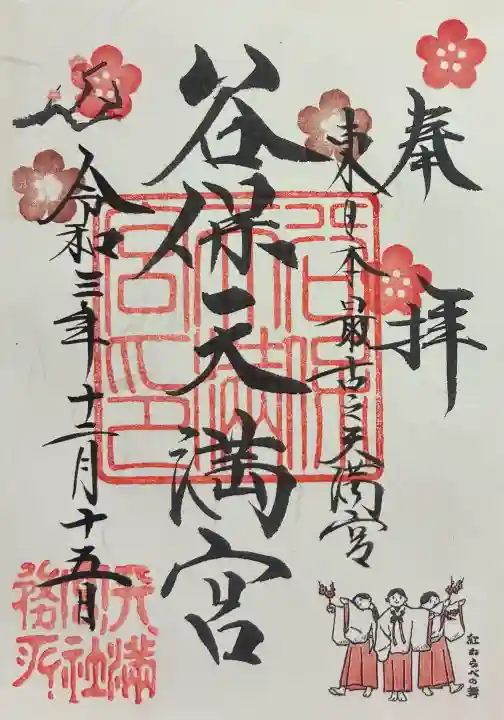 奉拝
東日本最古之天満宮
谷保天満宮
令和三年十二月十五日
紅わらべの舞